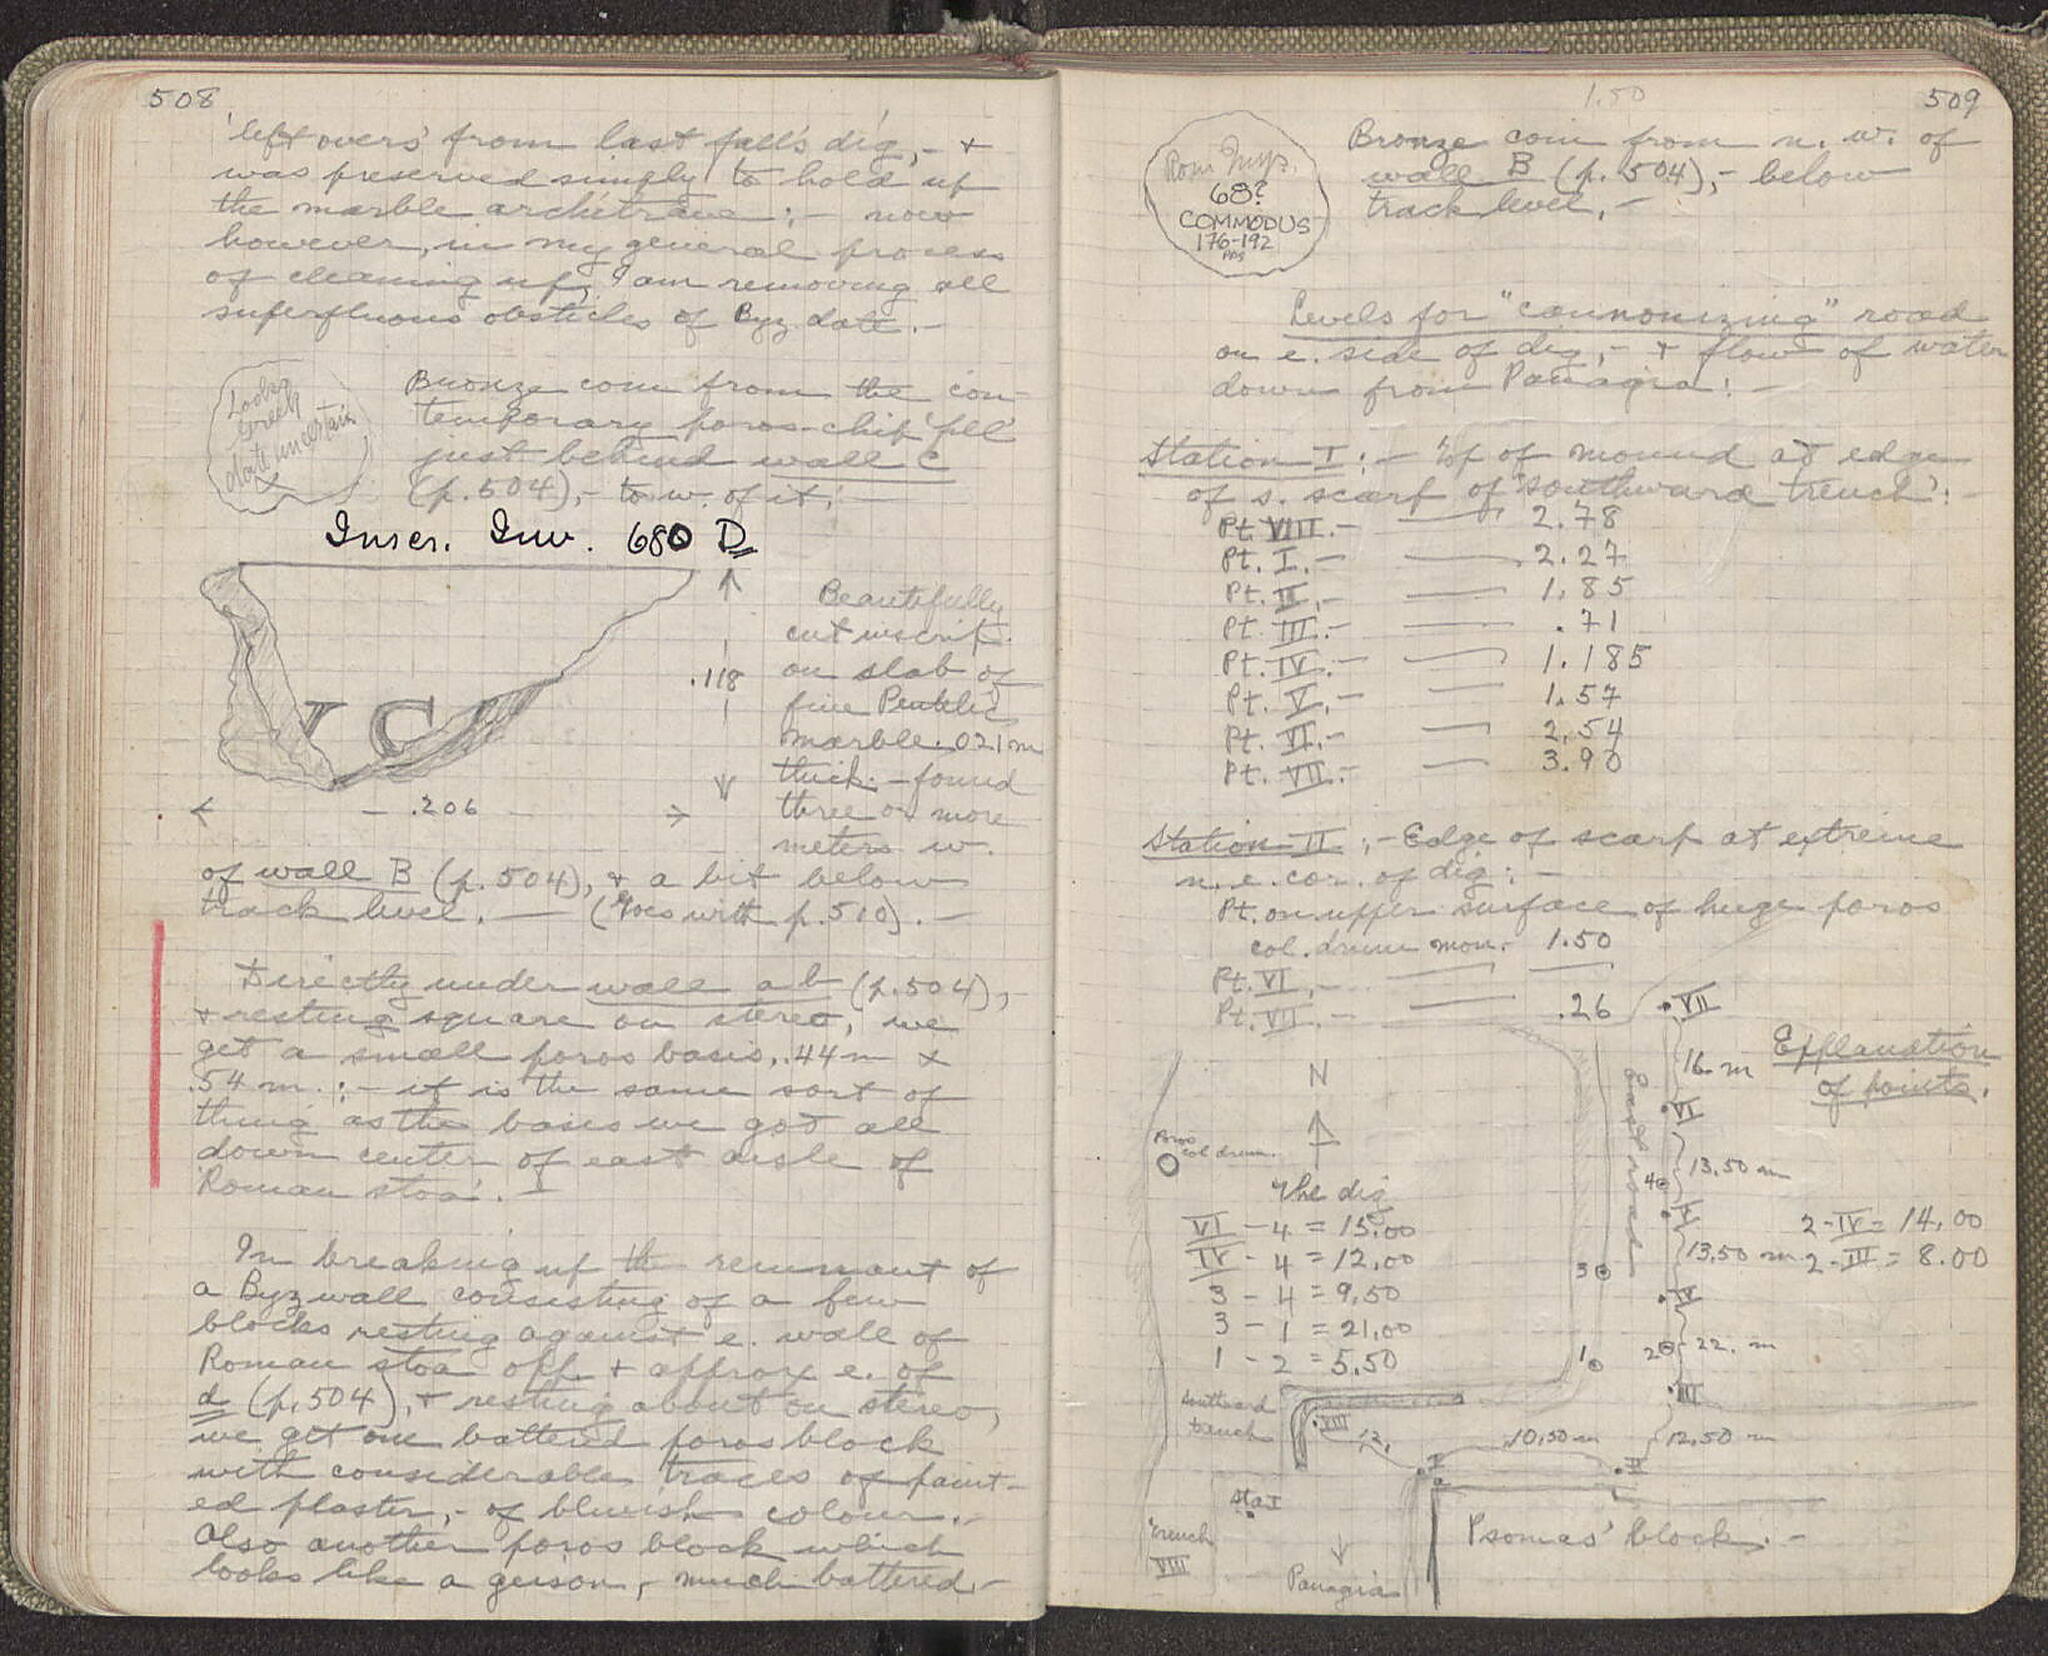 508
'left overs' from last fall's dig, - +
was preserved simply to hold up
the marble architrave : - now
however, in my general process
of cleaning up, I am removing all
superfluous obsticles of Byz. date. -
Looks
Greek
date uncertain
Bronze coin from the con-
temporary poros-chip 'fill'
just behind wall c
(p. 504), - to w. of it. -
Inscr. Inv. 680 D
Beautifully
cut inscrip.
on slab of
fine Pentelic
marble .021 m
thick. - found
three or more
meters w.
.118
.206
of wall B (p. 504), + a bit below
track level. - (Goes with p. 510). -
Directly under wall a b (p. 504), -
+ resting square on stereo, we
get a small poros basis, .44 m x
.54 m. : - it is the same sort of
thing as the bases we got all
down center of east aisle of
'Roman stoa'. -
In breaking up the remnant of
a Byz wall consisting of a few
blocks resting against e. wall of
Roman stoa opp. + approx e. of
d (p. 504), + resting about on stereo,
we get one battered poros block
with considerable traces of paint-
ed plaster, - of bluish colour. -
Also another poros block which
looks like a geison, - much battered. -
1.50
509
Rom Imp.
68?
COMMODUS
176-192
Bronze coin from n. w. of
wall B (p. 504), - below
track level. -
Levels for "cannonizing" road
on e. side of dig, - + flow of water
down from Panagia : -
Station I : - Top of mound at edge
of s. scarf of 'southward trench' :
Pt. VIII. - 2.78
Pt. I. - 2.27
Pt. II. - 1.85
Pt. III. - .71
Pt. IV. - 1.185
Pt. V. - 1.57
Pt. VI. - 2.54
Pt. VII. - 3.90
Station II : - Edge of scarf at extreme
n. e. cor. of dig : -
Pt. on upper surface of huge poros
col. drum mon. - 1.50
Pt. VI. -
Pt. VII. - .26
VII
Explanation
of points.
16 m
N
East road
VI
Poros
col drum.
13.50 m
4
The dig
V
VI - 4 = 15.00
2 - IV = 14.00
IV - 4 = 12.00
13.50 m
2 - III = 8.00
3
3 - 4 = 9.50
IV
3 - 1 = 21.00
1 - 2 = 5.50
1
2
22. m
III
southward
trench
VIII
12.
10.50 m
12.50 m
I
II
Sta I
Trench
VIII
Panagia
Psomas' block. -